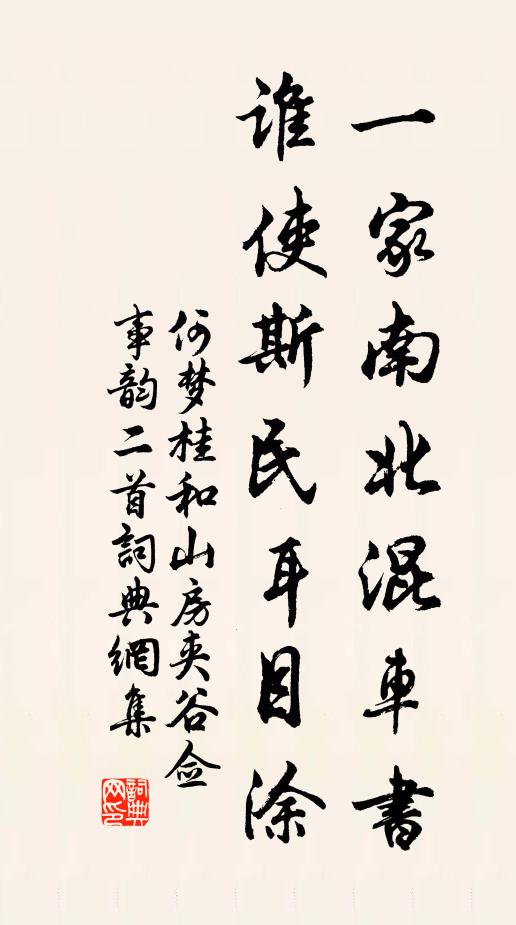 一家南北混車書
谁使斯民耳目涂
何梦桂和山房夹谷佥
事韵二首詞典網集
詞典网印